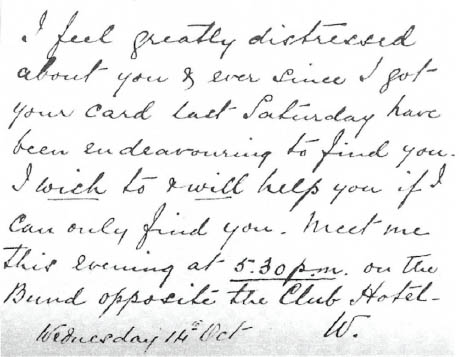 I feel greatly distressed
about you & ever since I got
your card last Saturday have
been endeavouring to find you.
I wish to & will help you if I
can only find you. Meet me
this evening at 5.30 p.m. on the
Bund opposite the Club Hotel-
Wednesday 14th Oct W.